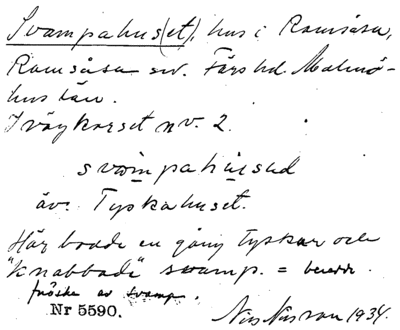 Svampahus(et), hus i Ramsåsa,
Ramsåsa sn. Färs hd. Malmö-
hus län.
I vägkorset n.v. 2.
svampahused
äv. Tyskahuset.
Här bodde en gång tyskar och
"knabbade" svamp. =
fnöske av svamp.
Nr 5590. Nils Nilsson 1934.